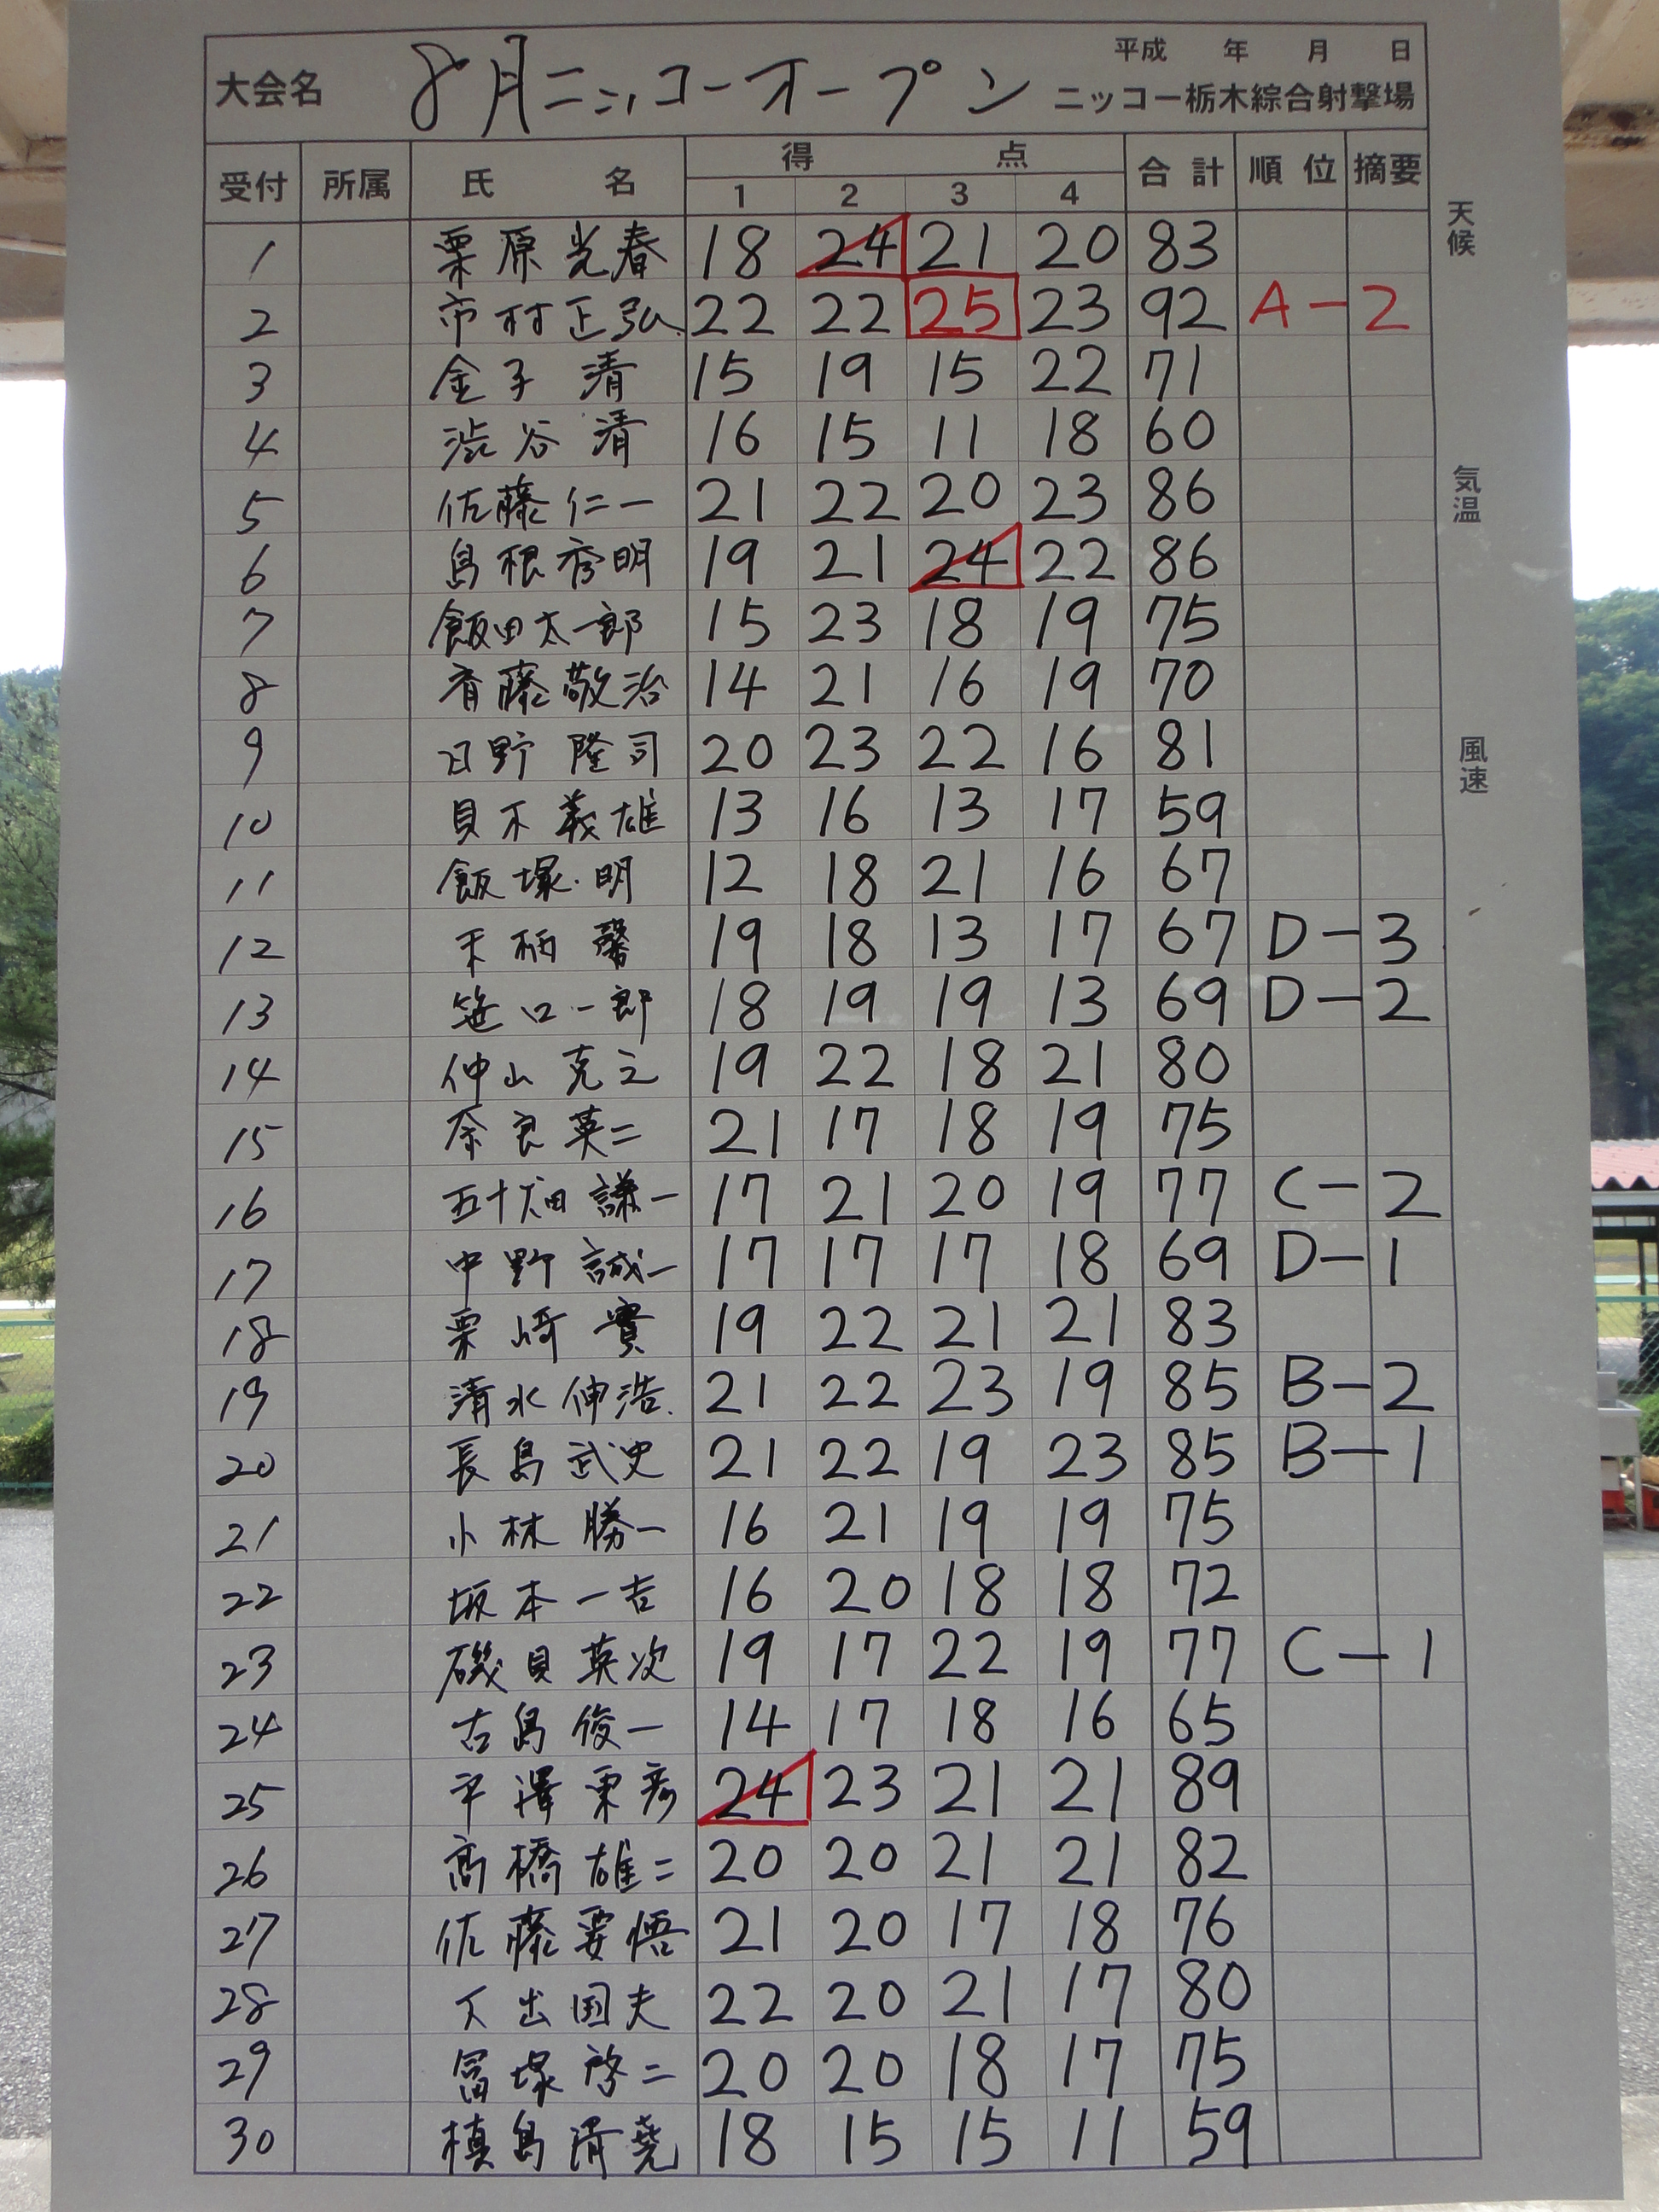 平成 年 月 日
大会名 8月ニッコーオープン ニッコー栃木綜合射撃場
受付 所属 氏 名 得 点 合計 順位 摘要
1 2 3 4
天候
気温
風速
1 栗原光春 18 24 21 20 83
2 市村正弘 22 22 25 23 92 A-2
3 金子 清 15 19 15 22 71
4 渋谷 清 16 15 11 18 60
5 佐藤仁一 21 22 20 23 86
6 島根秀明 19 21 24 22 86
7 飯田太一郎 15 23 18 19 75
8 斉藤敬治 14 21 16 19 70
9 日野隆司 20 23 22 16 81
10 貝木義雄 13 16 13 17 59
11 飯塚 明 12 18 21 16 67
12 柄 馨 19 18 13 17 67 D-3
13 笹口一郎 18 19 19 13 69 D-2
14 仲山克之 19 22 18 21 80
15 奈良英二 21 17 18 19 75
16 五十畑謙一 17 21 20 19 77 C-2
17 中野誠一 17 17 17 18 69 D-1
18 栗崎 實 19 22 21 21 83
19 清水伸浩 21 22 23 19 85 B-2
20 長島武史 21 22 19 23 85 B-1
21 小林勝一 16 21 19 19 75
22 坂本一吉 16 20 18 18 72
23 磯貝英次 19 17 22 19 77 C-1
24 古島俊一 14 17 18 16 65
25 平澤 彦 24 23 21 21 89
26 高橋雄二 20 20 21 21 82
27 佐藤要悟 21 20 17 18 76
28 出国夫 22 20 21 17 80
29 冨塚啓二 20 20 18 17 75
30 槙島清 18 15 15 11 59